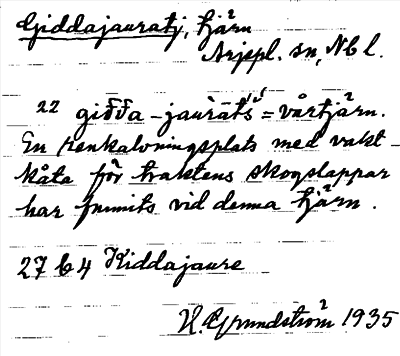 Giddajauratj, tjärn
Arjepl. sn, Nbl.
22 giđđa-jaurāts' = vårtjärn.
En renkalvningsplats med vakt-
kåta för traktens skogslappar
har funnits vid denna tjärn.
27 b 4 Kiddajaure
H. Grundström 1935